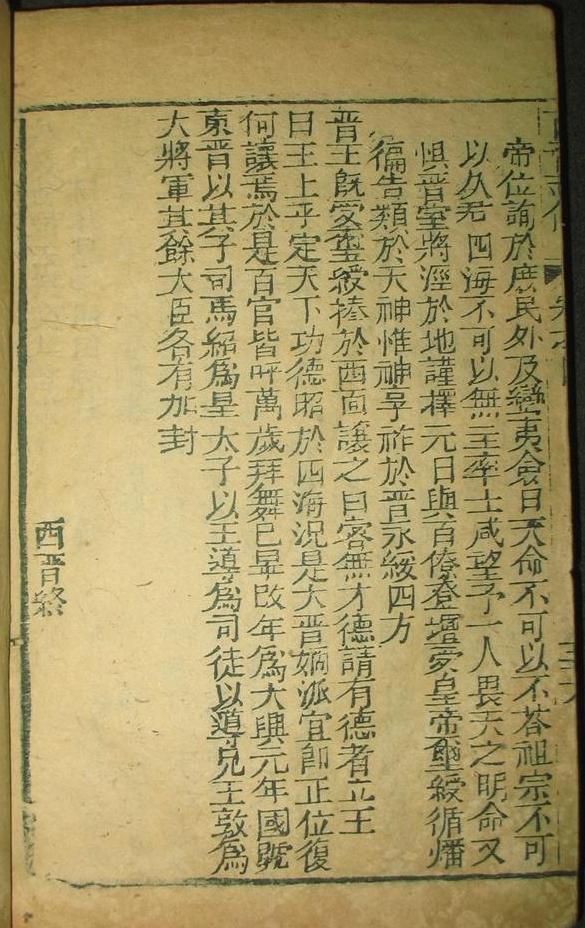 帝位詢於庶民外及蠻夷僉曰天命不可以不荅祖宗不可
以久君四海不可以無主率土咸望予一人畏天之明命又
惧晋室將湮於地謹擇元日與百僚登壇受皇帝璽綬循燔
徧告類於天神惟神享祚於晋永綏四方
晋王既受璽綬捧於西面讓之曰容無才德請有德者立王
曰王上乎定天下功德昭於四海況是大晋嫡派宜即正位復
何讓焉於是百官皆呼萬歲拜舞已畢改年爲大興元年國號
東晋以其子司馬紹爲皇太子以王導爲司徒以導兄王敦爲
大將軍其餘大臣各有加封
西晋終